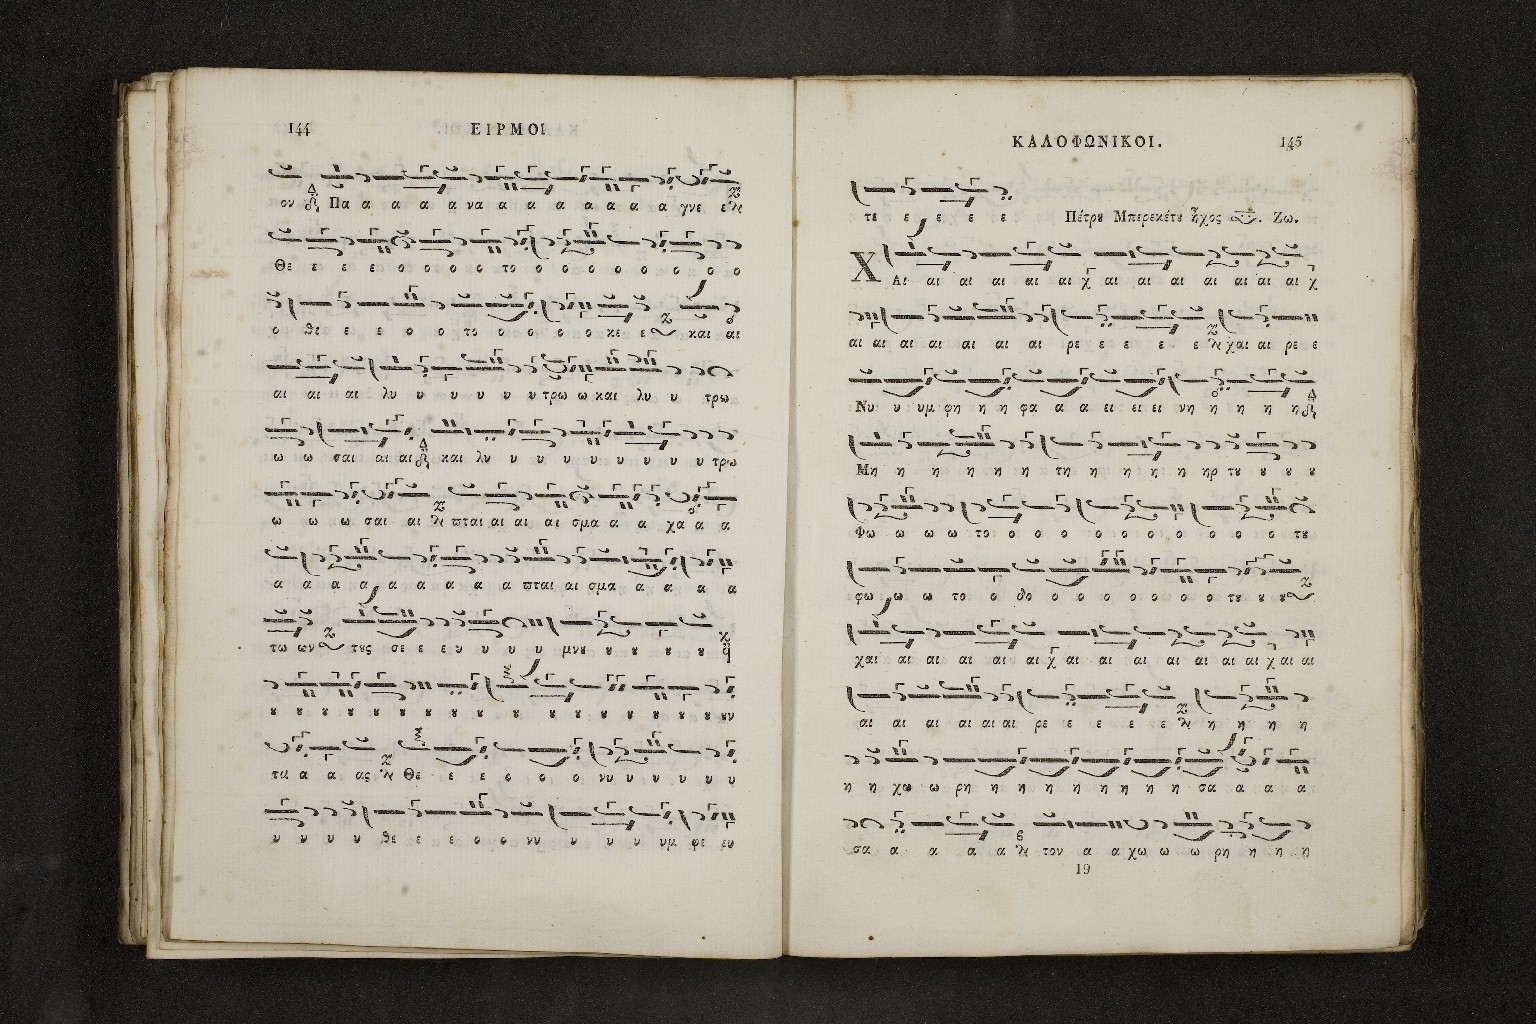 144 ΕΙΡΜΟΙ
ον Πα α α α α να α α α α α α α γνε ε
Θε ε ε ε ο ο ο ο το ο ο ο ο ο ο ο ο ο
ο θε ε ε ο ο το ο ο ο ο κε ε και αι
αι αι αι λυ υ υ υ υ υ τρω ω και λυ υ τρω
ω ω σαι αι αι και λυ υ υ υ υ υ υ υ υ τρω
ω ω ω σαι αι πται αι αι αι σμα α α χα α α
α α α α α α α α α πται αι σμα α α α α
τω ων τȣς σε ε ευ υ υ υ μνȣ ȣ ȣ ȣ ȣ
ȣ ȣ ȣ ȣ ȣ ȣ ȣ ȣ ȣ ȣ ȣ ȣ ȣ ȣ ȣ ȣν
τα α α ας Θε ε ε ο ο ο νυ υ υ υ υ υ
υ υ υ υ θε ε ε ο ο νυ υ υ υ υμ φε ευ
ΚΑΛΟΦΩΝΙΚΟΙ. 145
τε ε ε ε ε Πέτρȣ Μπερεκέτȣ ἦχος Ζω.
Χ Αι αι αι αι αι αι χ αι αι αι αι αι αι αι χ
αι αι αι αι αι αι αι ρε ε ε ε ε χαι αι ρε ε
Νυ υ υμ φη η η φα α α ει ει ει νη η η η η
Μη η η η η η τη η η η η ηρ τȣ ȣ ȣ ȣ
Φω ω ω ω το ο ο ο ο ο ο ο ο ο ο τȣ
φω ω ω το ο ο ο ο ο ο ο ο τȣ ȣ ȣ
χαι αι αι αι αι αι χ αι αι αι αι αι αι αι χ αι αι
αι αι αι αι αι αι ρε ε ε ε ε η η η η
η η χω ω ρη η η η η η η η σα α α α
σα α α α α τον α α χω ω ω ρη η η η
19